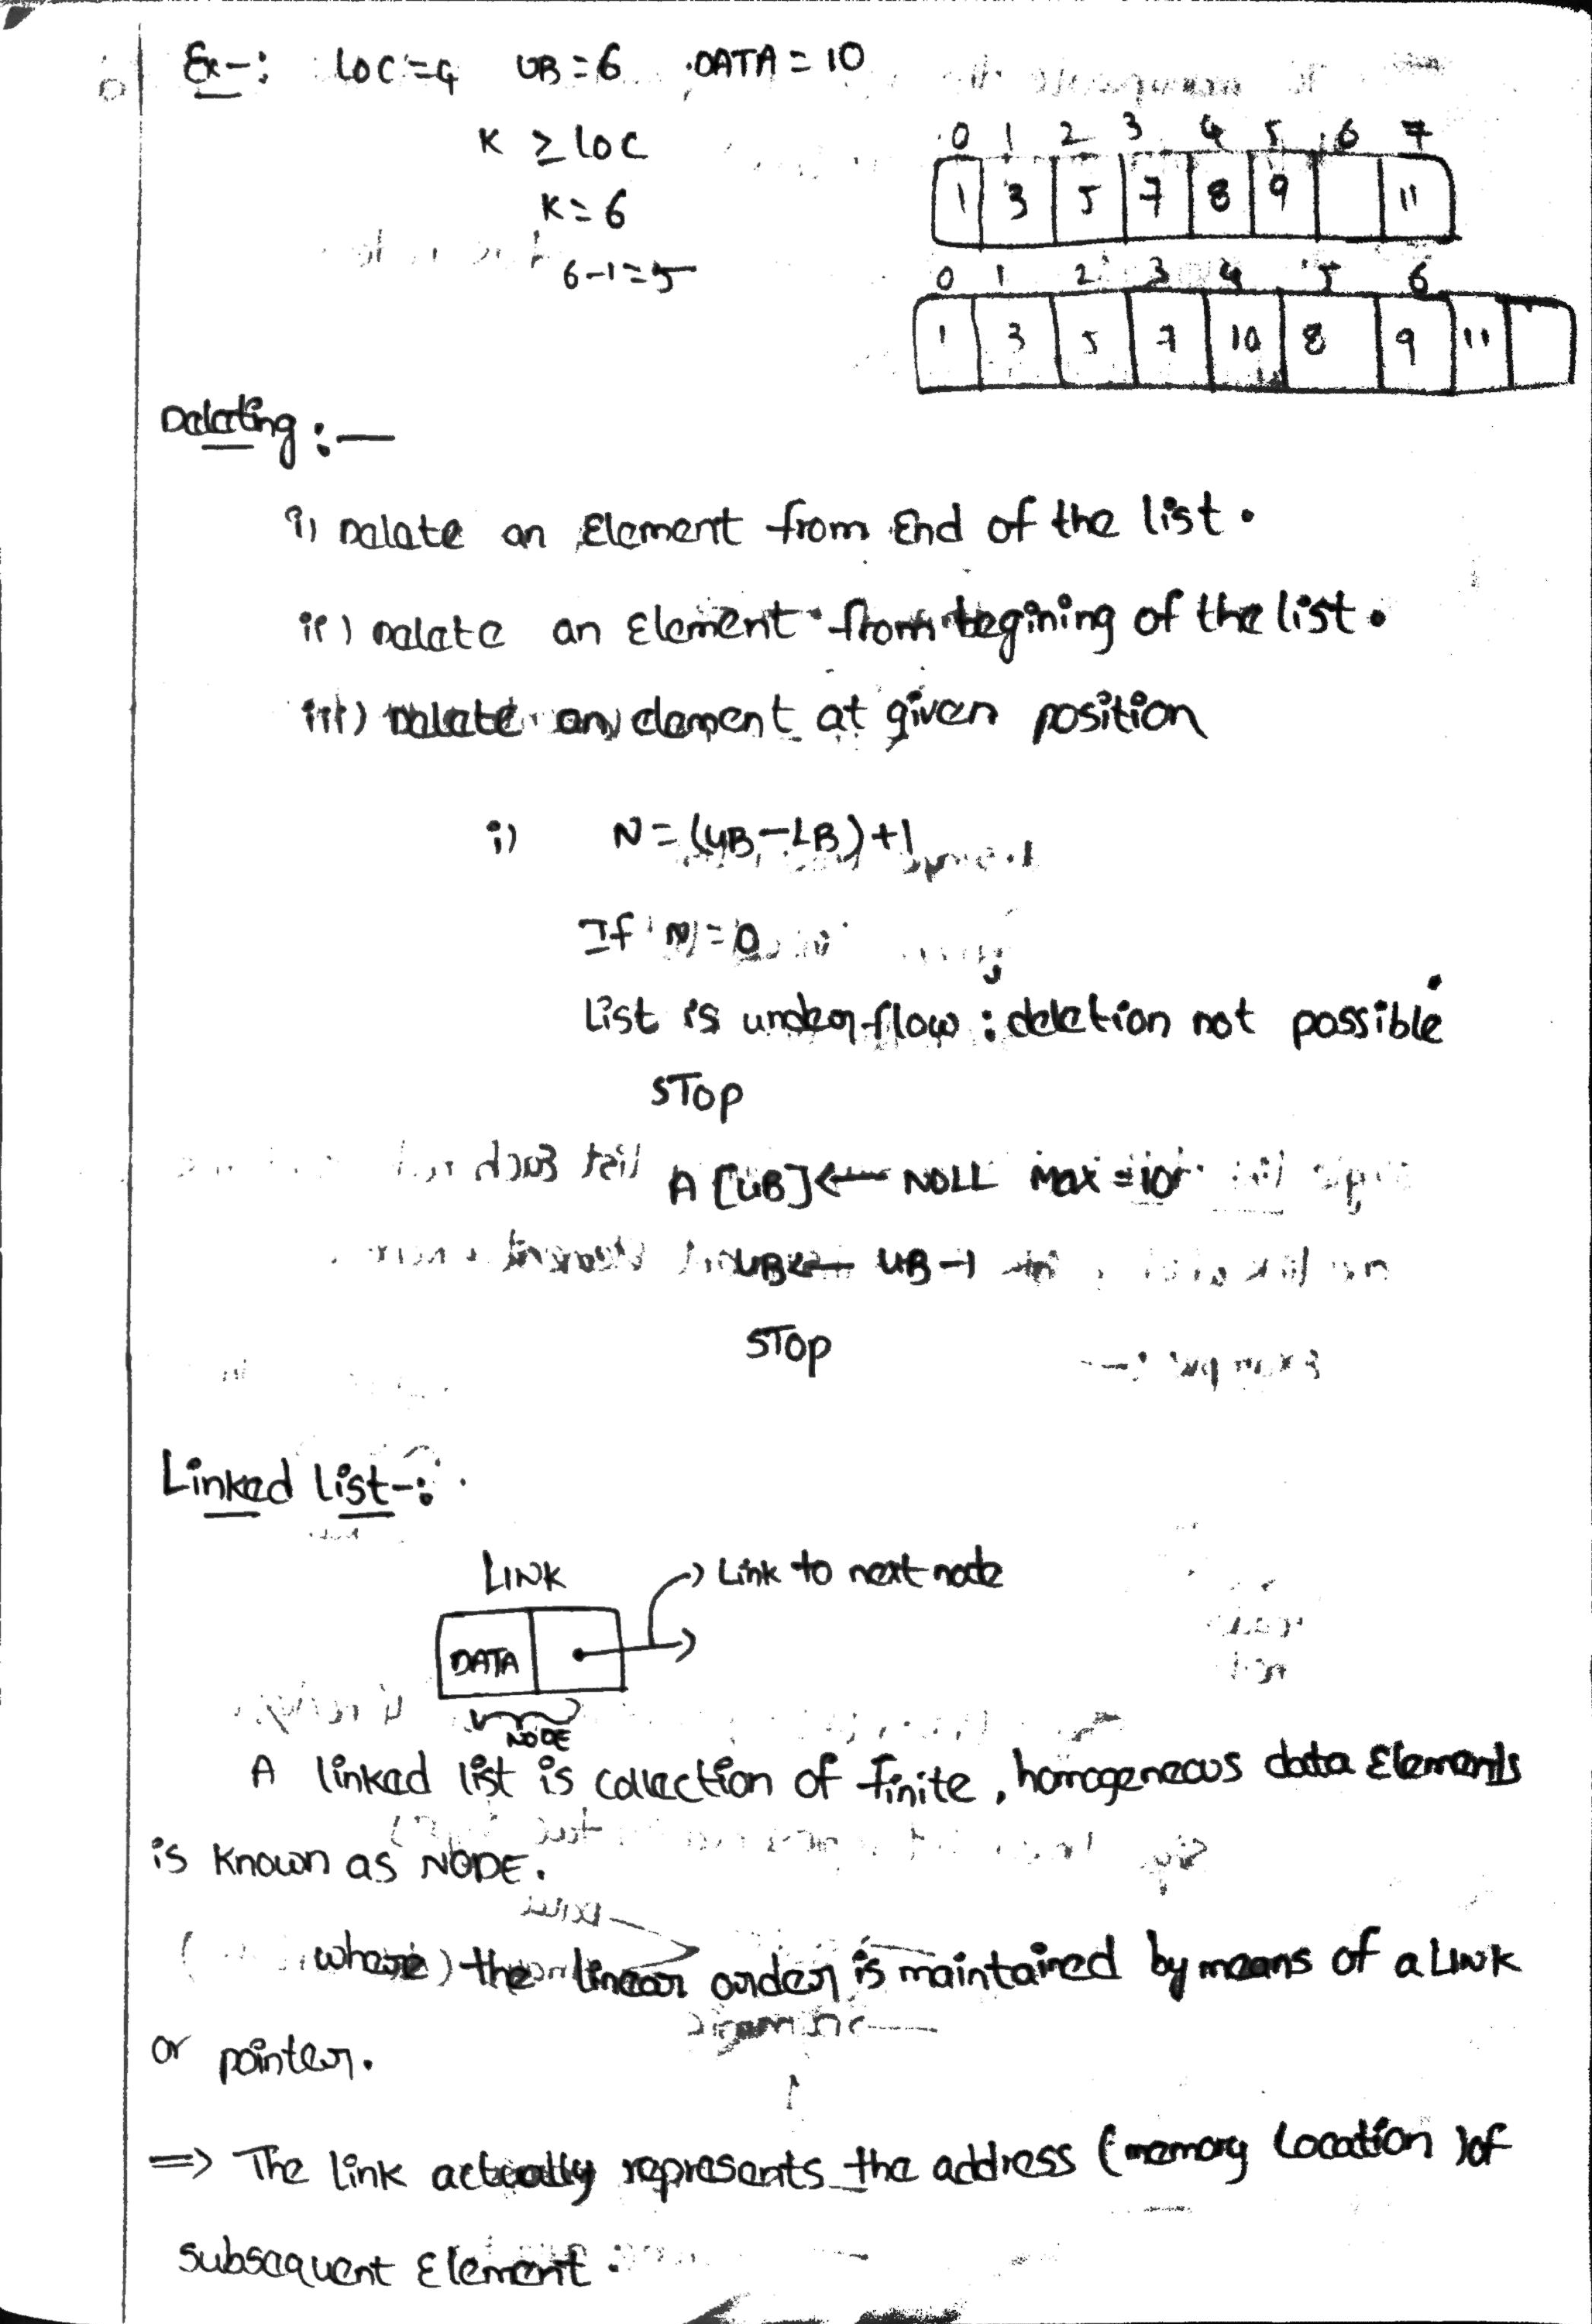 Ex-: LOC=4 UB=6 DATA=10
K ≥ LOC
K=6
6-1=5
0 1 2 3 4 5 6 7
1 3 5 7 8 9 11
0 1 2 3 4 5 6
1 3 5 7 10 8 9 11
Delating :—
i) Dalate an Element from End of the list.
ii) Dalate an Element from begining of the list.
iii) Dalate any element at given position
i) N=(UB-LB)+1
If N=0
List is underflow ; deletion not possible
STOP
A[UB]← NULL Max=10
UB← UB-1
STOP
Linked list-:
LINK
Link to next node
DATA
NODE
A linked list is collection of finite, homogeneous data Elements
is known as NODE.
where the linear order is maintained by means of a LINK
or pointer.
=> The link actually represents the address (memory Location) of
subsequent Element.